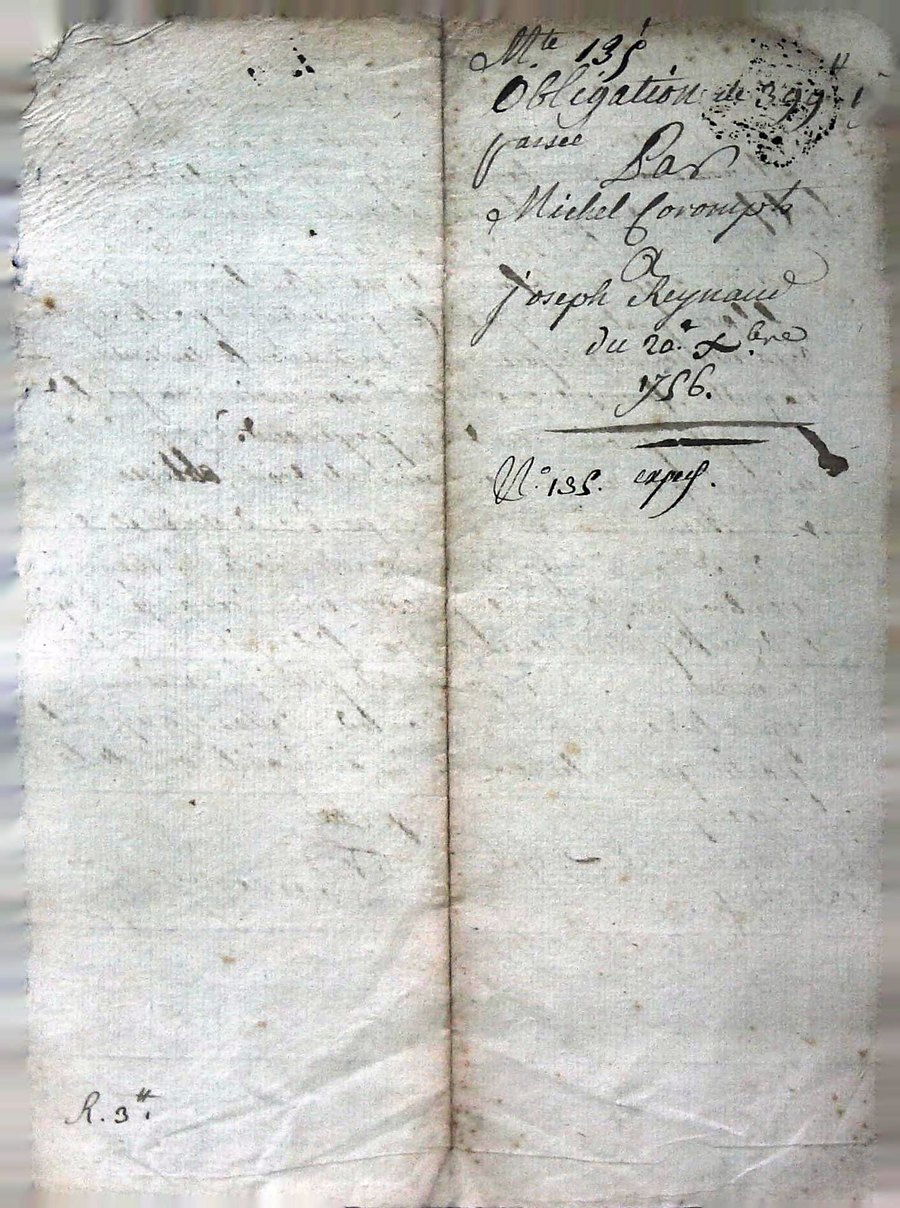 Mte 135
Obligation de 399 ₶
passée
Par
Michel Corompt
A
joseph Reynaud
du 20e Xbre
1756.
N° 135. exped.
R. 3₶.